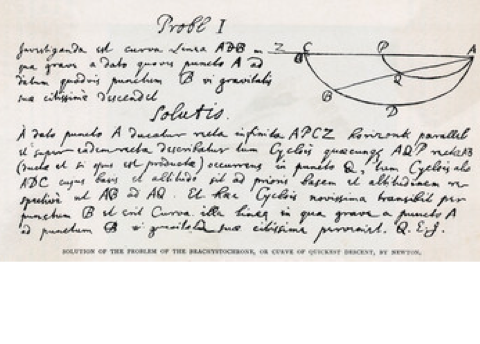 Probl I
Investiganda est curva Linea ADB in
qua grave a dato quovis puncto A ad
datum quodvis punctum B vi gravitatis
suæ citissime descendet
Z C P A
B Q
D
Solutio.
A dato puncto A ducatur recta infinita APCZ horizonti parallela
et super eadem recta describatur tum Cyclois quæcunque AQP rectæ AB
(ductæ et si opus est productæ) occurrens in puncto Q, tum Cyclois alia
ADC cujus basis et altitudo sit ad prioris basem et altitudinem re-
spective ut AB ad AQ. Et hæc Cyclois novissima transibit per
punctum B et erit Curva illa linea in qua grave a puncto A
ad punctum B vi gravitatis suæ citissime perveniet. Q. E. I.
SOLUTION OF THE PROBLEM OF THE BRACHYSTOCHRONE, OR CURVE OF QUICKEST DESCENT, BY NEWTON.